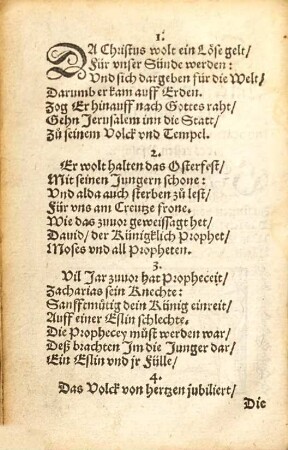 1.
DA Christus wolt ein Löse gelt/
Für vnser Sünde werden:
Vnd sich dargeben für die Welt/
Darumb er kam auff Erden.
Zog Er hinauff nach Gottes raht/
Gehn Jerusalem inn die Statt/
Zů seinem Volck vnd Tempel.
2.
Er wolt halten das Osterfest/
Mit seinen Jungern schone:
Vnd alda auch sterben zů lest/
Für vns am Creutze frone.
Wie das zuuor geweissagt het/
Dauid/ der Künigklich Prophet/
Moses vnd all Propheten.
3.
Vil Jar zuuor hat Propheceit/
Zacharias sein Knechte:
Sanfftmütig dein Künig einreit/
Auff einer Eslin schlechte.
Die Prophecey můst werden war/
Deß brachten Im die Junger dar/
Ein Eslin vnd jr Fülle/
4.
Das Volck von hertzen jubiliert/
Die